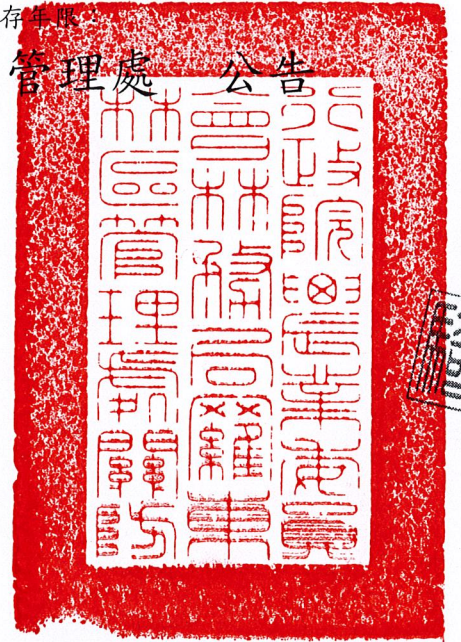 存年限：
管理處 公告
行政院農業委員
會林務局羅東
林區管理處關防